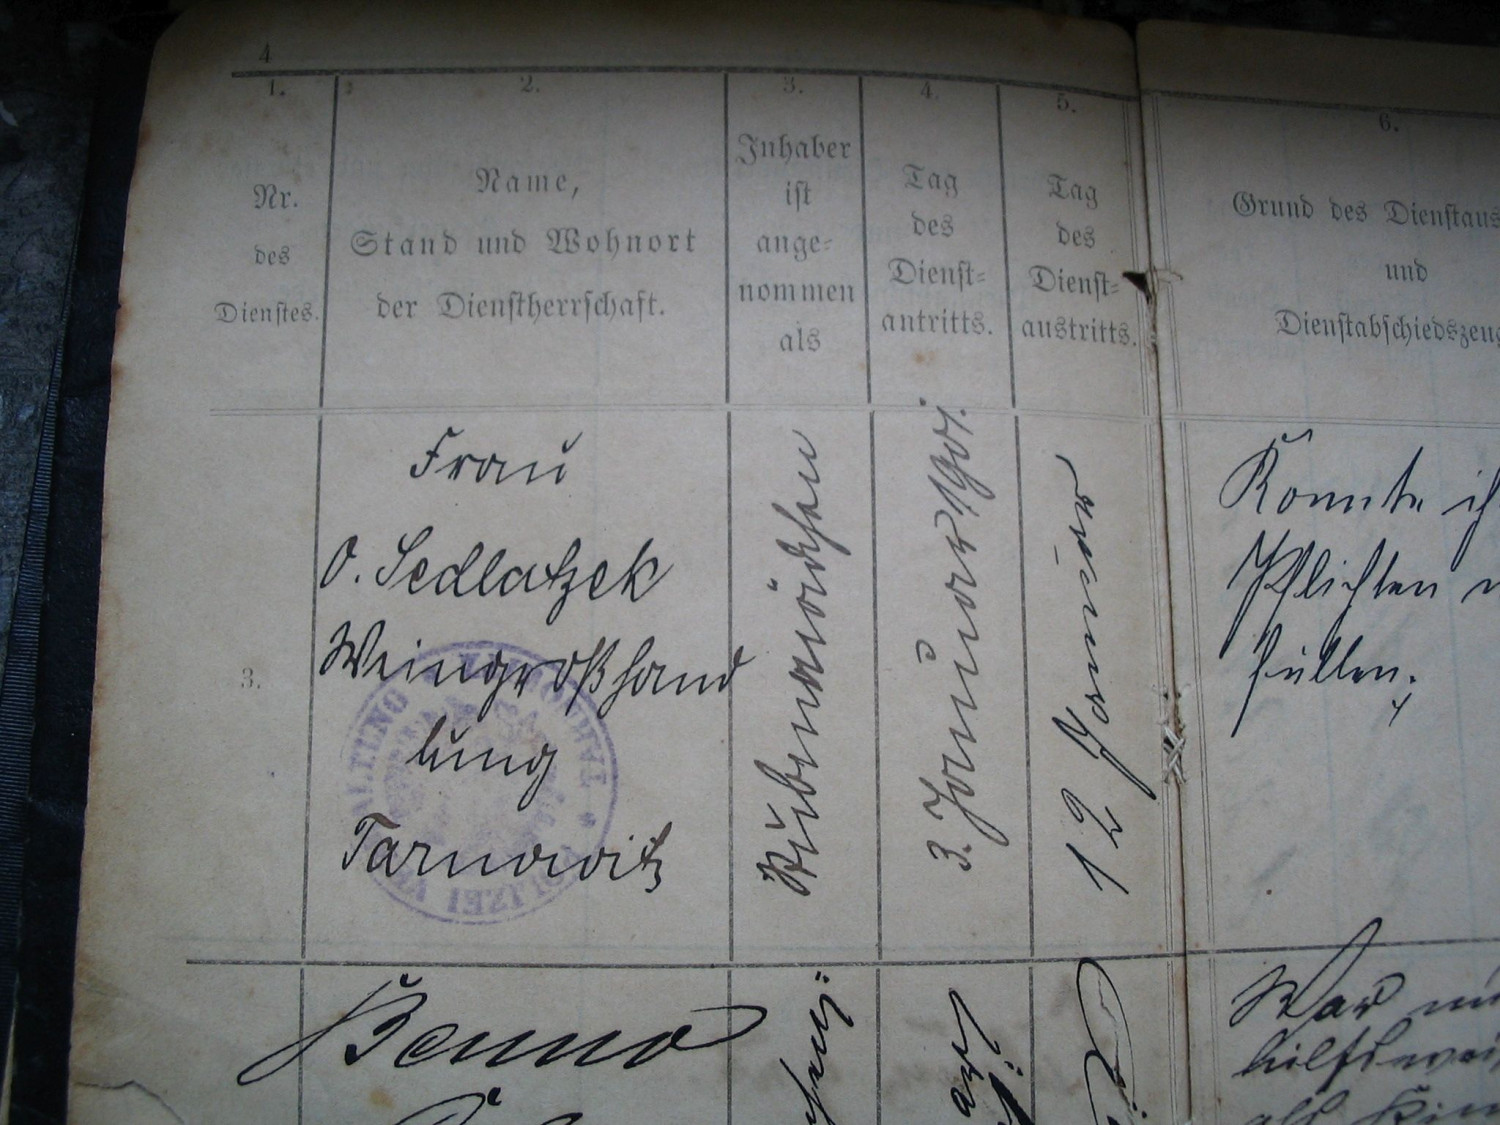 4
1.
2.
3.
4.
5.
6.
Nr.
des
Dienstes.
Name,
Stand und Wohnort
der Dienstherrschaft.
Inhaber
ist
ange-
nommen
als
Tag
des
Dienst-
antritts.
Tag
des
Dienst-
austritts.
Grund des Dienstaus
und
Dienstabschiedszeug
3.
Frau
O. Sedlatzek
Weingroßhand
lung
Tarnowitz
Stubenmädchen
3. Januar 1901.
12 Januar
Konnte ih
Pflichten
füllen.
POLIZEI VERWALTUNG
Benno
War
hilfswei
als